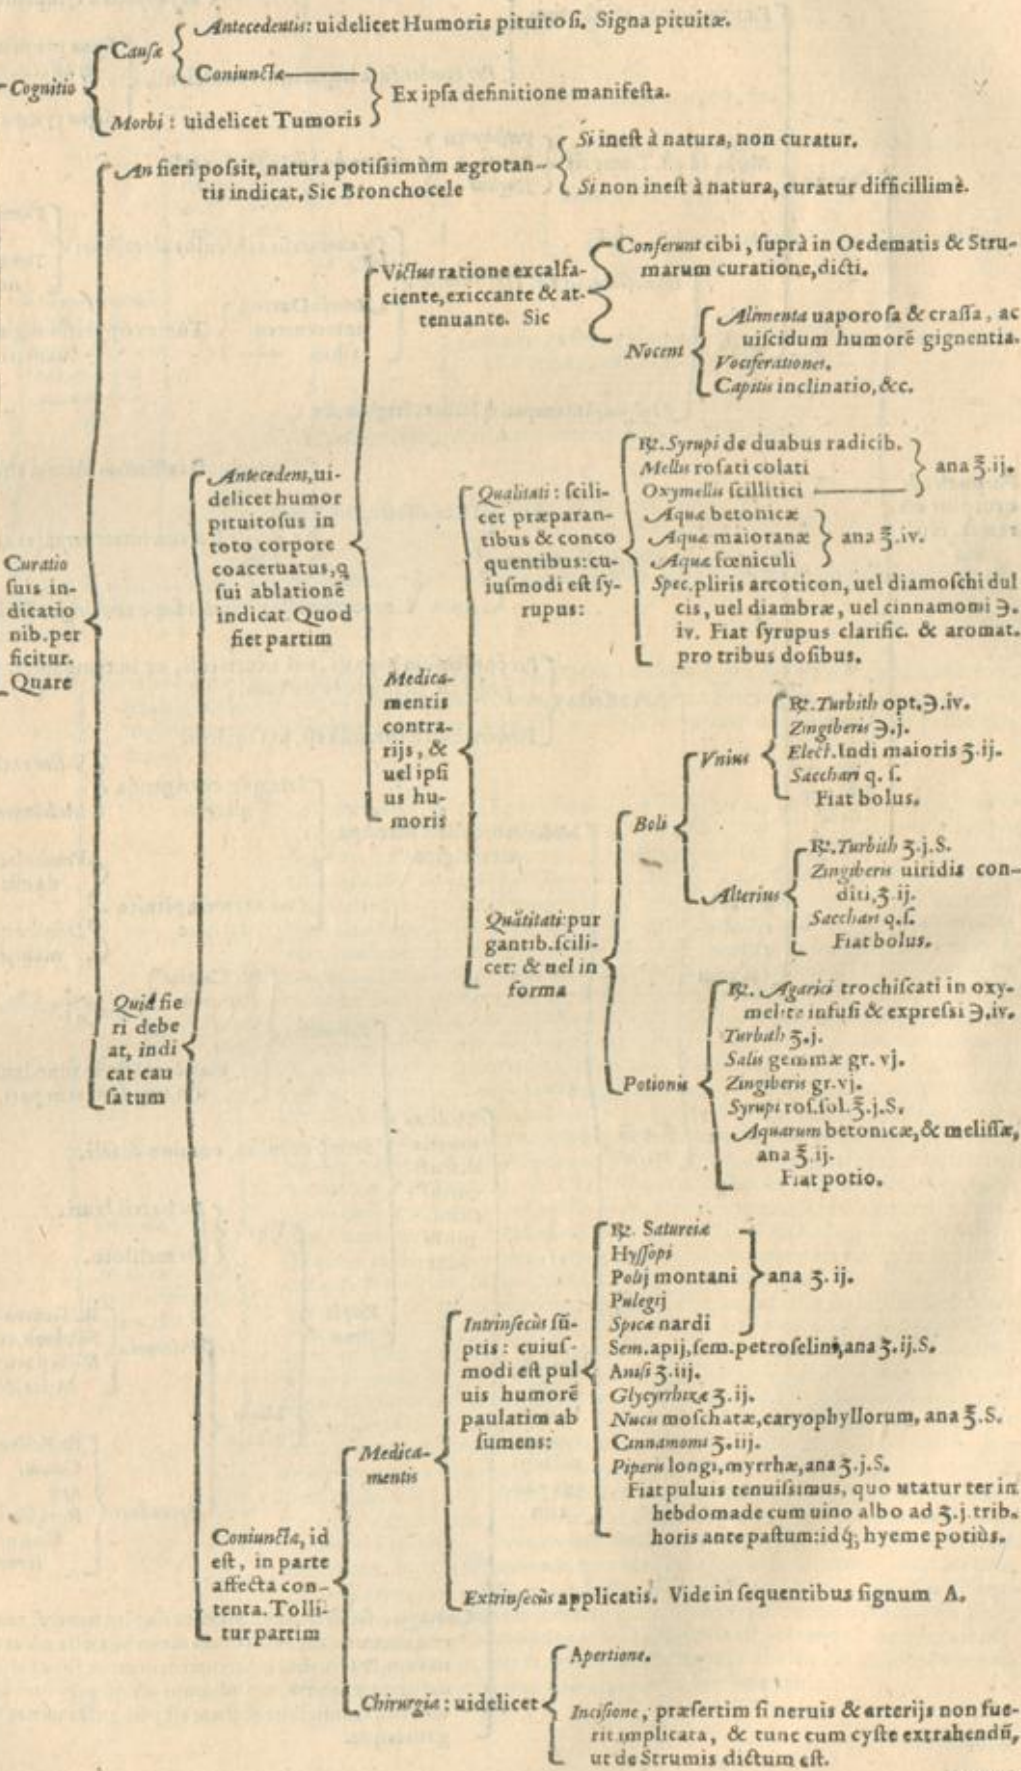 Antecedentis: uidelicet Humoris pituitosi. Signa pituitæ.
Causæ
Coniunctæ
Cognitio
Ex ipsa definitione manifesta.
Morbi: uidelicet Tumoris
An fieri possit, natura potissimùm ægrotan-
tis indicat, Sic Bronchocele
Si inest à natura, non curatur.
Si non inest à natura, curatur difficillimè.
Curatio
suis in-
dicatio
nib. per
ficitur.
Quare
Quid fie
ri debe
at, indi
cat cau
satum
Antecedens, ui-
delicet humor
pituitosus in
toto corpore
coaceruatus, q
sui ablationē
indicat. Quod
fiet partim
Victus ratione excalfa-
ciente, exiccante & at-
tenuante. Sic
Conferunt cibi, suprà in Oedematis & Stru-
marum curatione, dicti.
Nocent
Alimenta uaporosa & crassa, ac
uiscidum humorē gignentia.
Vociferationes.
Capitis inclinatio, &c.
Medica-
mentis
contra-
rijs, &
uel ipsi
us hu-
moris
Qualitati: scili-
cet præparan-
tibus & conco
quentibus: cu-
iusmodi est sy-
rupus:
℞. Syrupi de duabus radicib.
Mellis rosati colati
Oxymellis scillitici
ana ℥.ij.
Aquæ betonicæ
Aquæ maioranæ
Aquæ fœniculi
ana ℥.iv.
Spec. pliris arcoticon, uel diamoschi dul
cis, uel diambræ, uel cinnamomi ℈.
iv. Fiat syrupus clarific. & aromat.
pro tribus dosibus.
Quātitati: pur
gantib. scili-
cet: & uel in
forma
Boli
Vnius
℞. Turbith opt. ℈.iv.
Zingiberis ℈.j.
Elect. Indi maioris ʒ.ij.
Sacchari q. s.
Fiat bolus.
Alterius
℞. Turbith ʒ.j.S.
Zingiberis uiridis con-
diti, ʒ.ij.
Sacchari q.s.
Fiat bolus.
Potionis
℞. Agarici trochiscati in oxy-
melite infusi & expressi ℈.iv.
Turbith ʒ.j.
Salis gemmæ gr. vj.
Zingiberis gr. vj.
Syrupi ros. sol. ℥.j.S.
Aquarum betonicæ, & melissæ,
ana ℥.ij.
Fiat potio.
Coniuncta, id
est, in parte
affecta con-
tenta. Tolli-
tur partim
Medica-
mentis
Intrinsecùs sū-
ptis: cuius-
modi est pul
uis humorē
paulatim ab
sumens:
℞. Satureiæ
Hyssopi
Polij montani
Pulegij
Spicæ nardi
ana ʒ. ij.
Sem. apij, sem. petroselini, ana ʒ.ij.S.
Anisi ʒ.iij.
Glycyrrhizæ ʒ.ij.
Nucis moschatæ, caryophyllorum, ana ℥.S.
Cinnamomi ʒ.iij.
Piperis longi, myrrhæ, ana ʒ.j.S.
Fiat puluis tenuissimus, quo utatur ter in
hebdomade cum uino albo ad ʒ.j. trib.
horis ante pastum: idq́; hyeme potiùs.
Extrinsecùs applicatis. Vide in sequentibus signum A.
Chirurgia: uidelicet
Apertione.
Incisione, præsertim si neruis & arterijs non fue-
rit implicata, & tunc cum cyste extrahendū,
ut de Strumis dictum est.